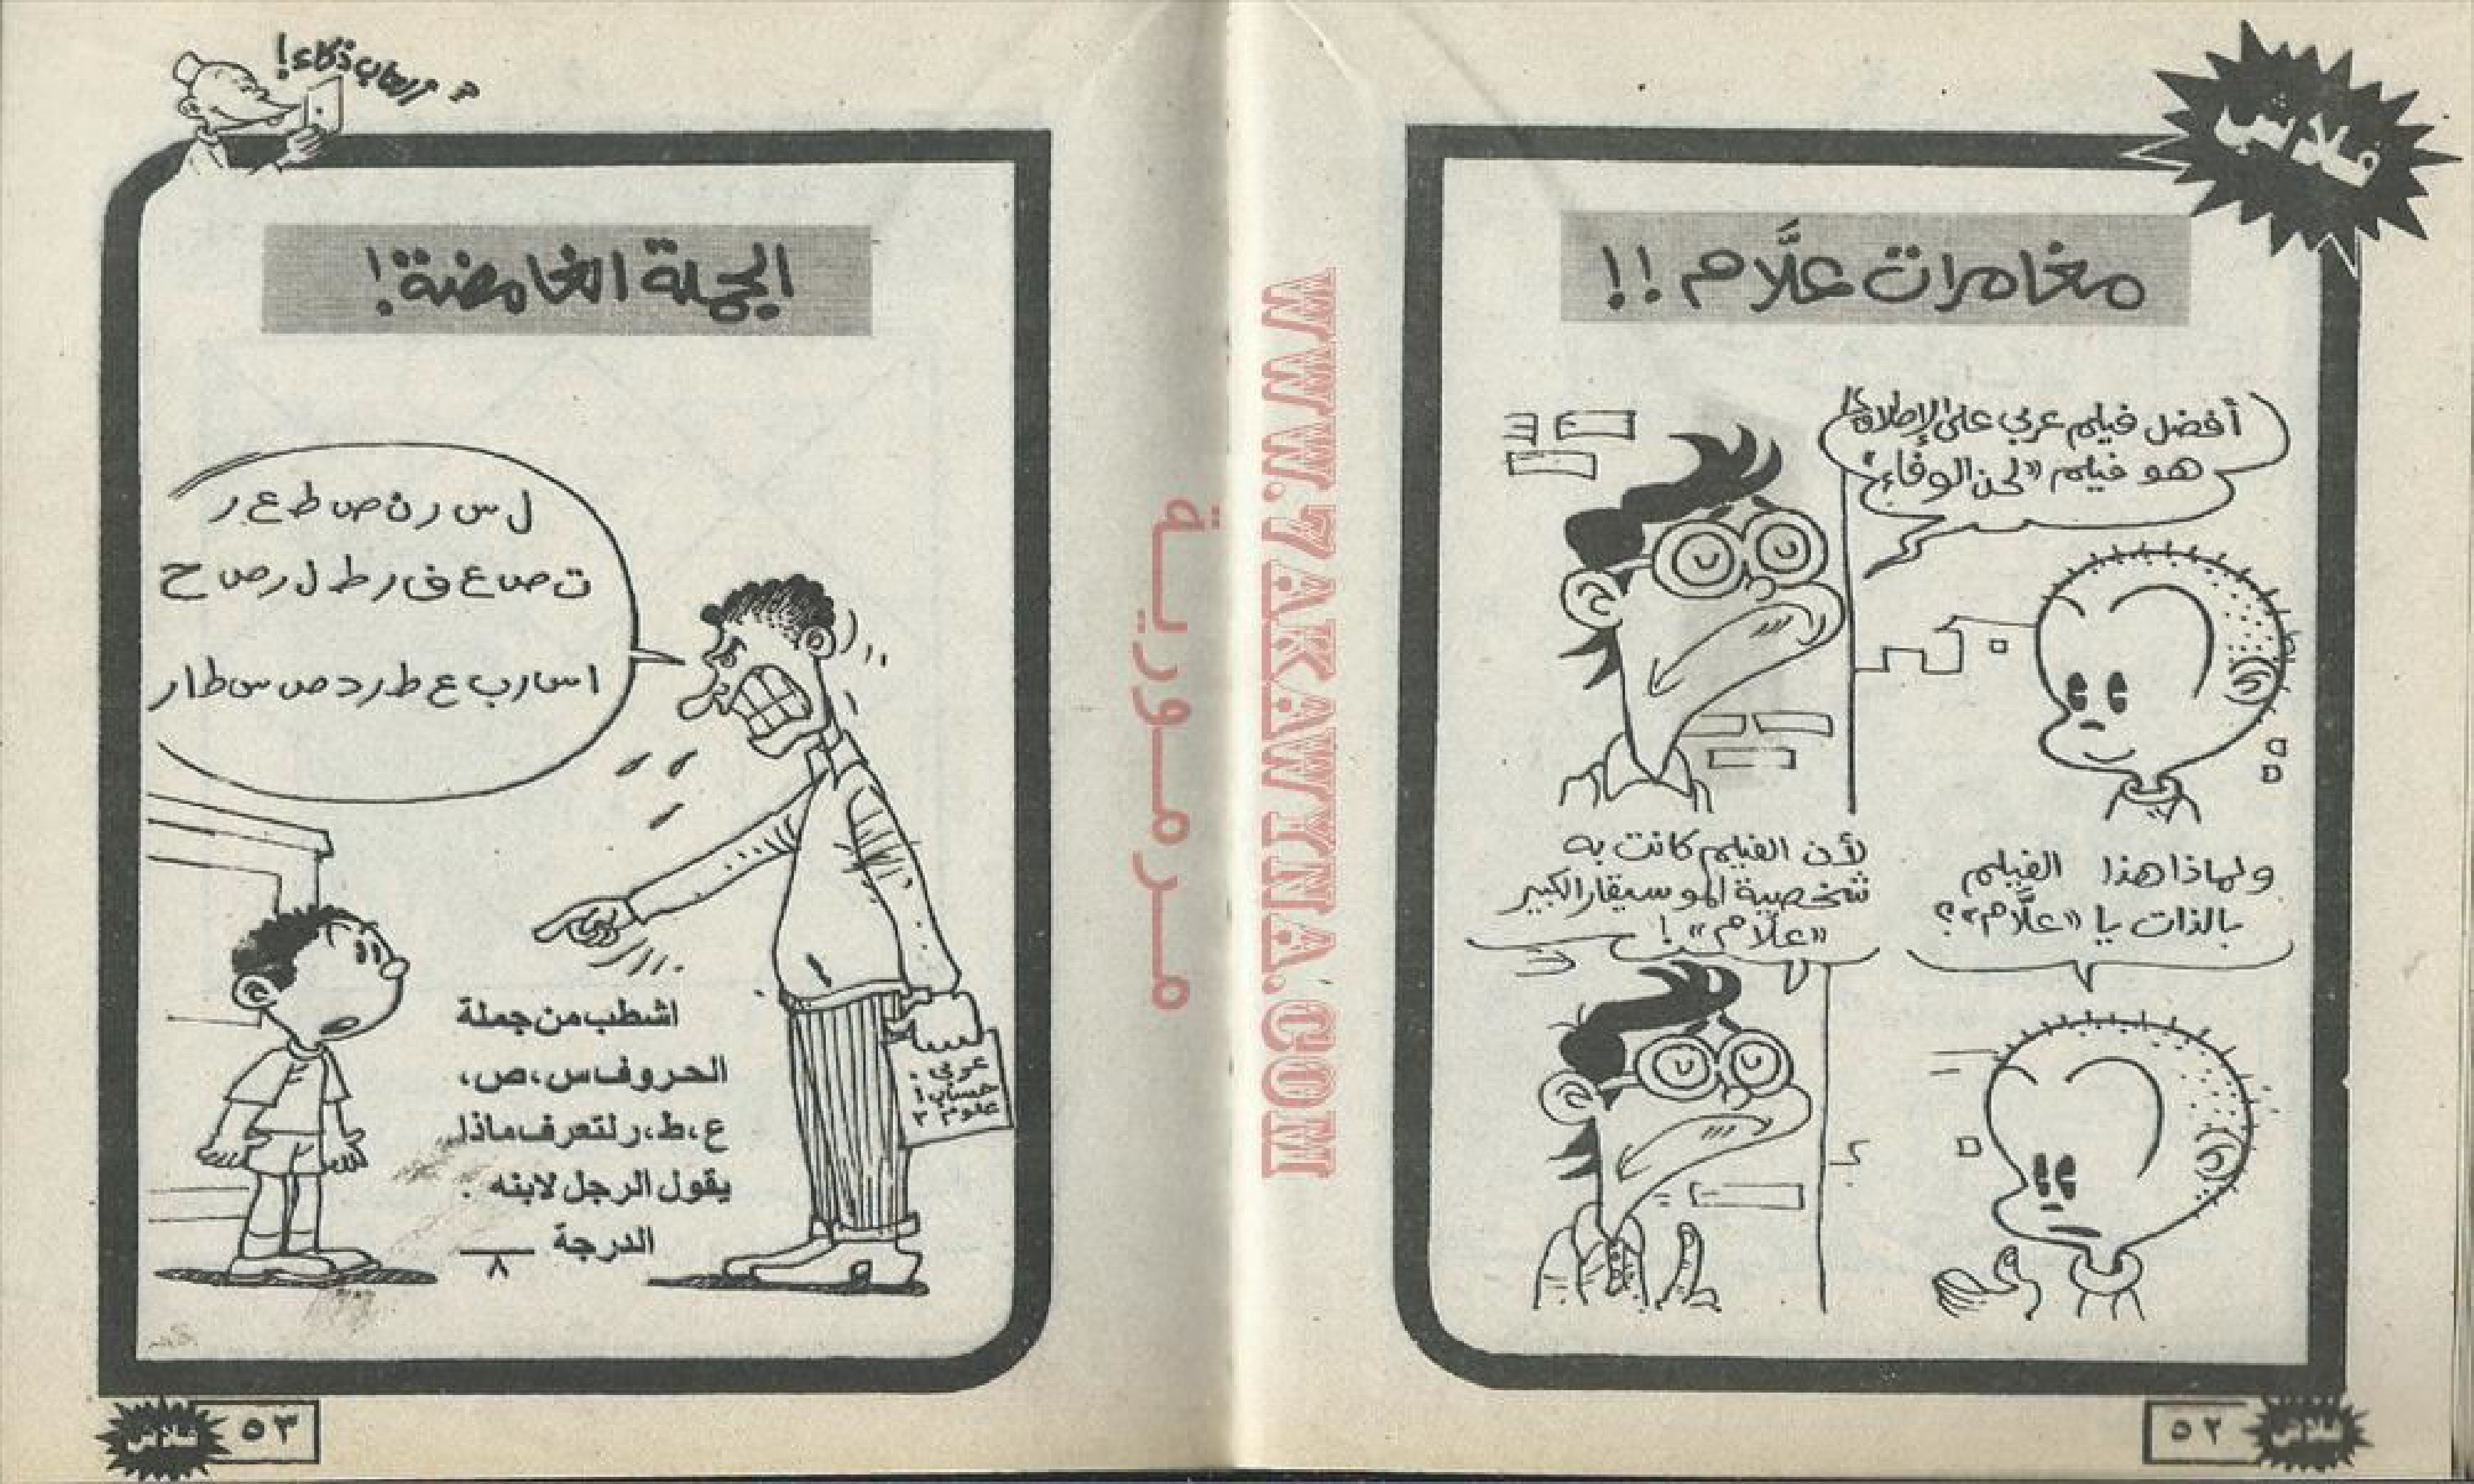 ملاسب
مغامرات علَّام !!
أفضل فيلم عربي على الإطلاق
هو فيلم "لحن الوفاء"
ولماذا هذا الفيلم
بالذات يا "علَّام"؟
لأن الفيلم كانت به
شخصية الموسيقار الكبير
"علَّام" !
٥٢
WWW.7AKAWITNA.COM
مرمورية
ألعاب ذكاء!
الجملة الغامضة!
ل س ر ن ص ط ع ر
ت ص ع ف ر ط ل ر ص ح
ا س ا ر ب ع ط ر د ص س ط ا ر
عربي ٠
حساب ١
علوم ٢
اشطب من جملة
الحروف س، ص،
ع، ط، ر لتعرف ماذا
يقول الرجل لابنه .
الدرجة ــــ
٨
٥٣